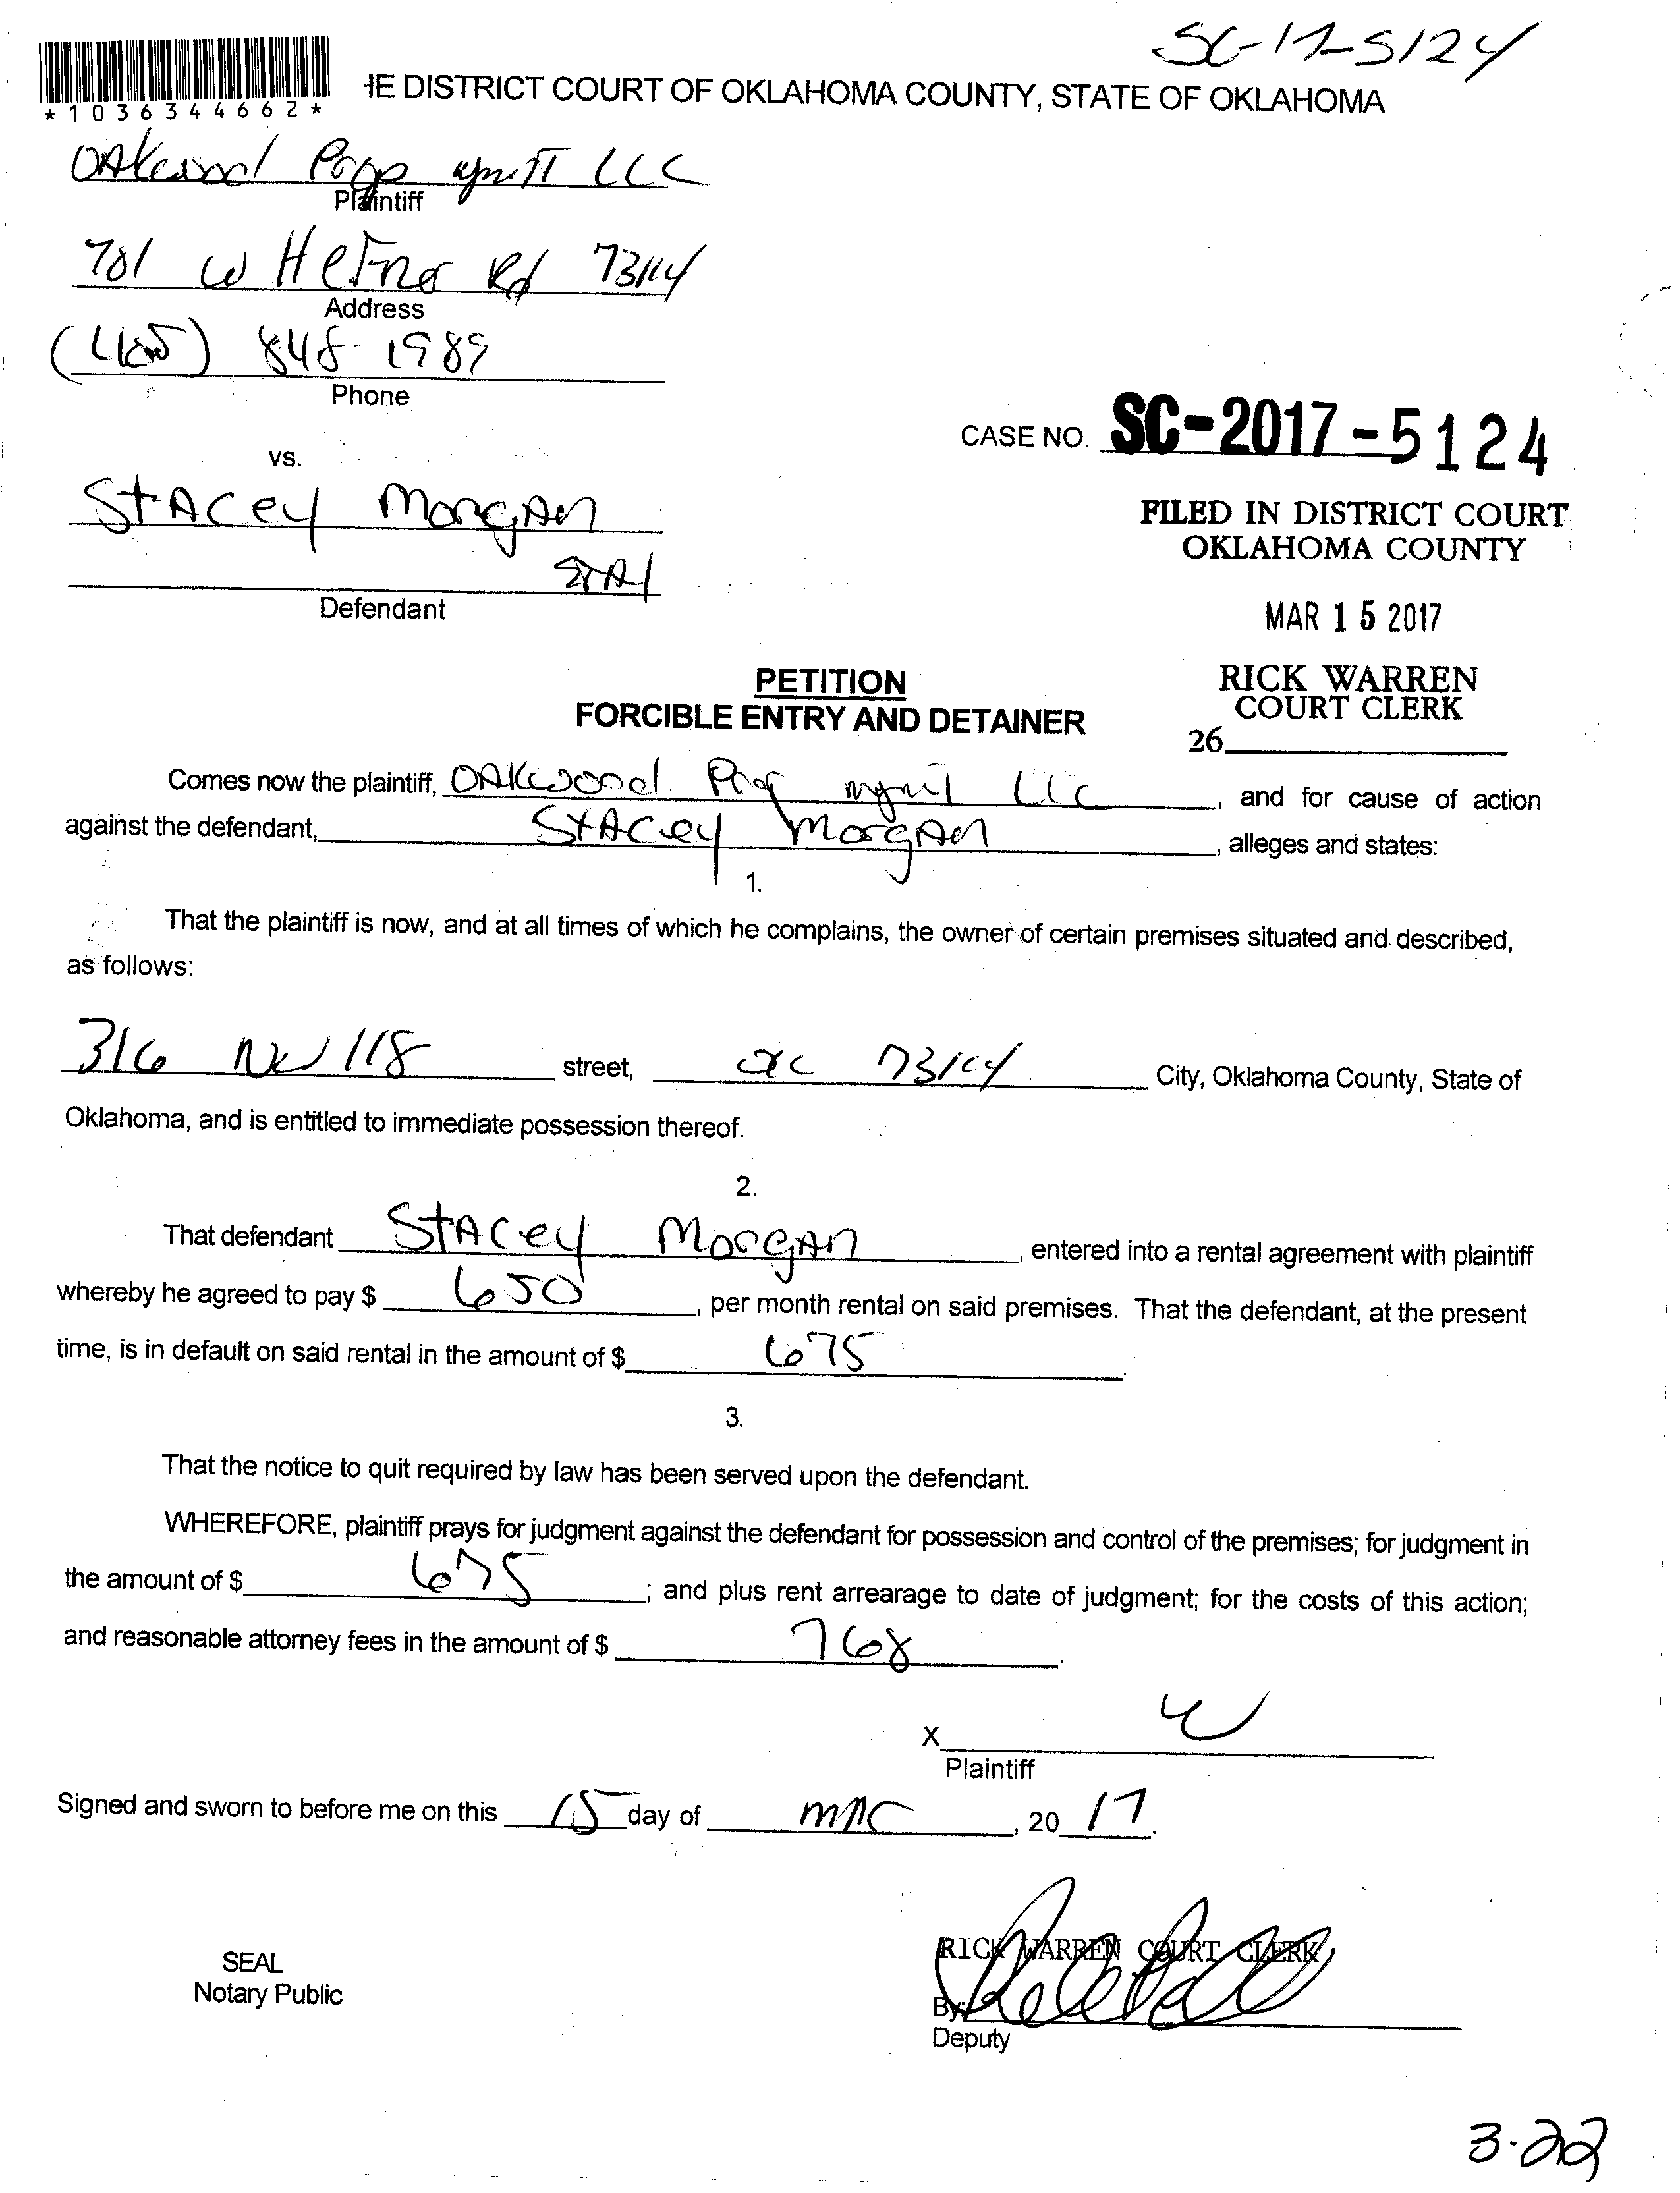 SC-17-5124
*1036344662*
HE DISTRICT COURT OF OKLAHOMA COUNTY, STATE OF OKLAHOMA
OAkwood Prop mgmt LLC
Plaintiff
701 W HeFner Rd 73114
Address
(405) 848-1989
Phone
CASE NO. SC-2017-5124
vs.
StAcey MorgAn
FILED IN DISTRICT COURT
OKLAHOMA COUNTY
Defendant
MAR 15 2017
PETITION
RICK WARREN
FORCIBLE ENTRY AND DETAINER
COURT CLERK
26
Comes now the plaintiff, OAkwood Prop mgmt LLC, and for cause of action
against the defendant, StAcey MorgAn, alleges and states:
1.
That the plaintiff is now, and at all times of which he complains, the owner of certain premises situated and described,
as follows:
316 NW 118 street, OKC 73114 City, Oklahoma County, State of
Oklahoma, and is entitled to immediate possession thereof.
2.
That defendant StAcey MorgAn, entered into a rental agreement with plaintiff
whereby he agreed to pay $ 650, per month rental on said premises. That the defendant, at the present
time, is in default on said rental in the amount of $ 675.
3.
That the notice to quit required by law has been served upon the defendant.
WHEREFORE, plaintiff prays for judgment against the defendant for possession and control of the premises; for judgment in
the amount of $ 675; and plus rent arrearage to date of judgment; for the costs of this action;
and reasonable attorney fees in the amount of $ 768.
X
Plaintiff
Signed and sworn to before me on this 15 day of MAr, 20 17.
SEAL
Notary Public
RICK WARREN COURT CLERK
By
Deputy
3-22